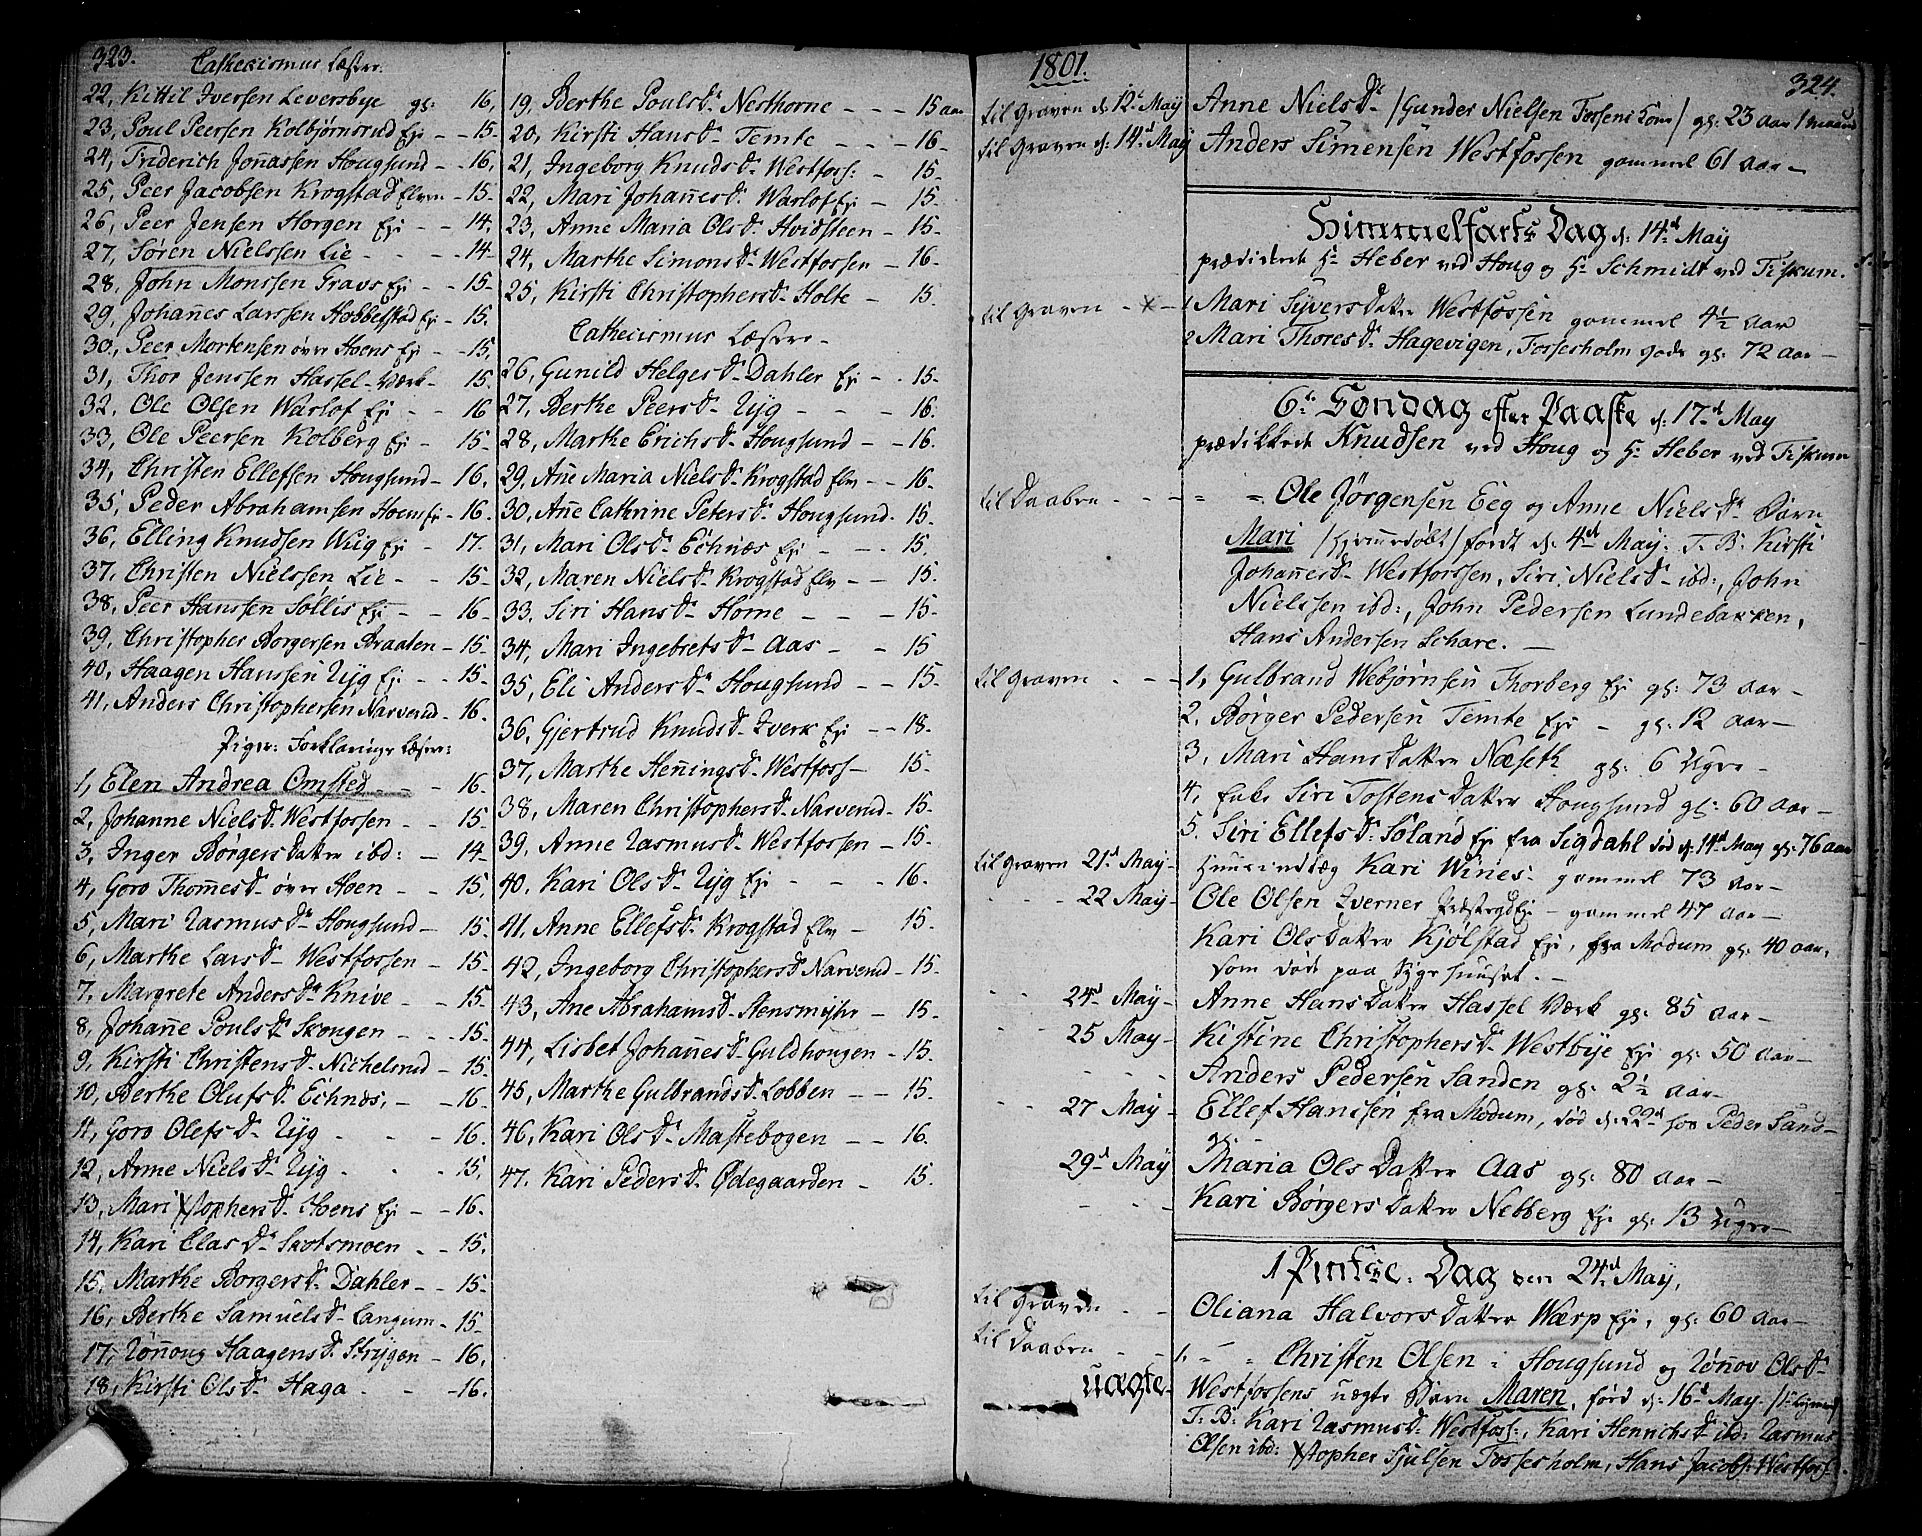 323.
Cathecismus Læsere.
22, Kittil Iversen Leversbye gl: 16,
23, Poul Peersen Kolbjørnsrud Eje - - 15.
24, Friderich Jonassen Hougsund - - 16,
25, Peer Jacobsen Krogstad Elven - 15.
26, Peer Jensen Horgen Eje - - 14.
27, Søren Nielssen Lie - - - 14
28, John Monssen Gravs Eje - - 15.
29, Johannes Larssen Hobbelstad Eje - 15.
30, Peer Mortensen över Hoens Eje - - 15,
31, Thor Jenssen Hassel-Værk - 15.
32, Ole Olsen Warlof Eje - - 16
33, Ole Peersen Kolberg Eje - 15.
34, Christen Ellefsen Hougsund - 16,
35, Peder Abrahamsen Hoens Eje - 16.
36, Elling Knudsen Wiig Eje - 17.
37, Christen Nielssen Lie - - 15-
38, Peer Hanssen Sollis Eje - - 16
39, Christopher Borgersen Braaten - 15-
40, Haagen Hanssen Ryg Eje - - 15-
41, Anders Christophersen Narverud - 16.
Piger: Forklarings Læsere:
1, Elen Andrea Omsted - - - 16.
2, Johanne Nielsd. Westfossen - - 15.
3, Inger Borgers Datter ibd: - 14-
4, Goro Thomesd. över Hoen - - 15,
5, Mari Rasmusd. Hougsund - 15.
6, Marthe Larsd. Westfossen - 15.
7, Margrete Andersd. Knive - - 15.
8, Johanne Poulsd. Skougen - - - 15.
9, Kirsti Christensd. Nichelsrud - 15.
10, Berthe Olufsd. Echnæs, - - 16.
11, Goro Olefsd. Ryg - - - 16.
12, Anne Nielsd. Ryg - - - 15,
13, Mari Xtophersd. Hoens Eje - - 16.
14, Kari Clasd. Skotsmoen - - 15.
15, Marthe Borgersd. Dahler - - 15.
16, Berthe Samuelsd. Langum - 15-
17, Rønnoug Haagensd. Strygen - 16,
18, Kirsti Olsd. Haga - - - 16.
19, Berthe Poulsd. Nesthorne - - - 15 aar
20, Kirsti Hansd. Temte - - - 16-
21, Ingeborg Knudsd. Westfoss: - 15-
22, Mari Johannesd. Warlof Eje - 15.
23, Anne Maria Olsd. Hvidsteen - 15-
24, Marthe Simonsd. Westfossen - 16-
25, Kirsti Christophersd. Holte - 15.
Cathecismus Læsere-
26, Gunild Helgesd. Dahler Eje - - 15-
27, Berthe Peersd. Ryg - - - 16.
28, Marthe Erichsd. Hougsund - - 16.
29, Ane Maria Nielsd. Krogstad Elv - - 16-
30, Ane Cathrine Petersd. Hougsund - 15-
31, Mari Olsd. Echnæs Eje - - - 15.
32, Maren Nielsd. Krogstad Elv - - 15-
33, Siri Hansd. Horne - - - 15-
34, Mari Ingebretsd. Aas - - 15
35, Eli Andersd. Hougsund - - 15-
36, Gjertrud Knudsd. Zverk Eje - - 18.
37, Marthe Henningsd. Westfoss - 15-
38, Maren Christophersd. Narverud - 15.
39, Anne Rasmusd. Westfossen - 15-
40, Kari Olsd. Ryg Eje - - - 16.
41, Anne Ellefsd. Krogstad Elv - 15.
42, Ingeborg Christophersd. Narverud - 15-
43, Ane Abrahamsd. Stensmyhr - - 15-
44, Lisbet Johannesd. Guldhougen - 15-
45, Marthe Gulbrandsd. Lobben - - 15-
46, Kari Olsd. Mastebogen - - 16.
47, Kari Pedersd. Ødegaarden - 15-
1801. 324.
til Graven d. 12t May Anne Nielsd. /Gunder Nielsen Fossens Kone/ gl: 23 aar 1 maand
til Graven d: 14d May Anders Simensen Westfossen gammel 61 aar-
Himmelfarts Dag d: 14d May
prædikede Hr Heber ved Houg og Hr Schmidt ved Fiskum.
til Graven - x - 1 Mari Syvers Datter Westfossen gammel 4½ aar
2 Mari Thoresd. Hagevigen, Fossesholm Gods gl: 72 aar-
6te Søndag efter Paaske d: 17d May
prædikkede Knudsen ved Houg og Hr Heber ved Fiskum
til Daaben - - - Ole Jörgensen Eeg og Anne Nielsd. Barn
Mari /hiemmedøbt/ født d: 4d May. T: B: Kirsti
Johannesd. Westfossen, Siri Nielsd. ibd:, John
Nielssen ibd:, John Pedersen Lundebakken,
Hans Andersen Schare. -
til Graven - - - 1, Gulbrand Webjørnsen Thorberg Eje gl: 73 aar-
2, Børger Pedersen Temte Eje - gl: 12 aar-
3, Mari Hans Datter Næseth gl: 6 Uger-
4, Enke Siri Tostens Datter Hougsund gl: 60 aar-
5, Siri Ellefsd. Soland Eje fra Sigdahl død d: 14d May gl: 76 aar
til Graven 21d May- Huusindtæg Kari Wines- gammel 73 aar-
- - - 22 May- Ole Olsen Zverner Præstegd Eje - gammel 47 aar-
Kari Ols Datter Kjølstad Eje, fra Modum gl: 40 aar,
som døde paa Sygehuuset. -
- - 24d May- Anne Hans Datter Hassel Værk gl: 85 aar-
- - 25 May- Kistine Christophersd. Westbye Eje gl: 50 aar-
- - - Anders Pedersen Sanden gl: 2½ aar-
- - 27 May- Ellef Hansen fra Modum, død d: 22d hos Peder Sand-
gl: -
29d May Maria Ols Datter Aas gl: 80 aar-
- - Kari Börgers Datter Nebberg Eje gl: 13 Uger-
1 Pintse Dag den 24d May,
til Graven - - Oliana Halvors Datter Wærp Eje, gl: 60 aar-
til Daaben - - 1. - - Christen Olsen i Hougsund og Rønnov Olsd.
uægte- Westfossens uægte Barn Maren, född d: 16d May.
T: B: Kari Rasmusd. Westfoss:, Kari Henrichsd. ibd: Rasmus
Olsen ibd: Xtopher Sjulsen Fossesholm, Hans Jacobs: Westfoss: